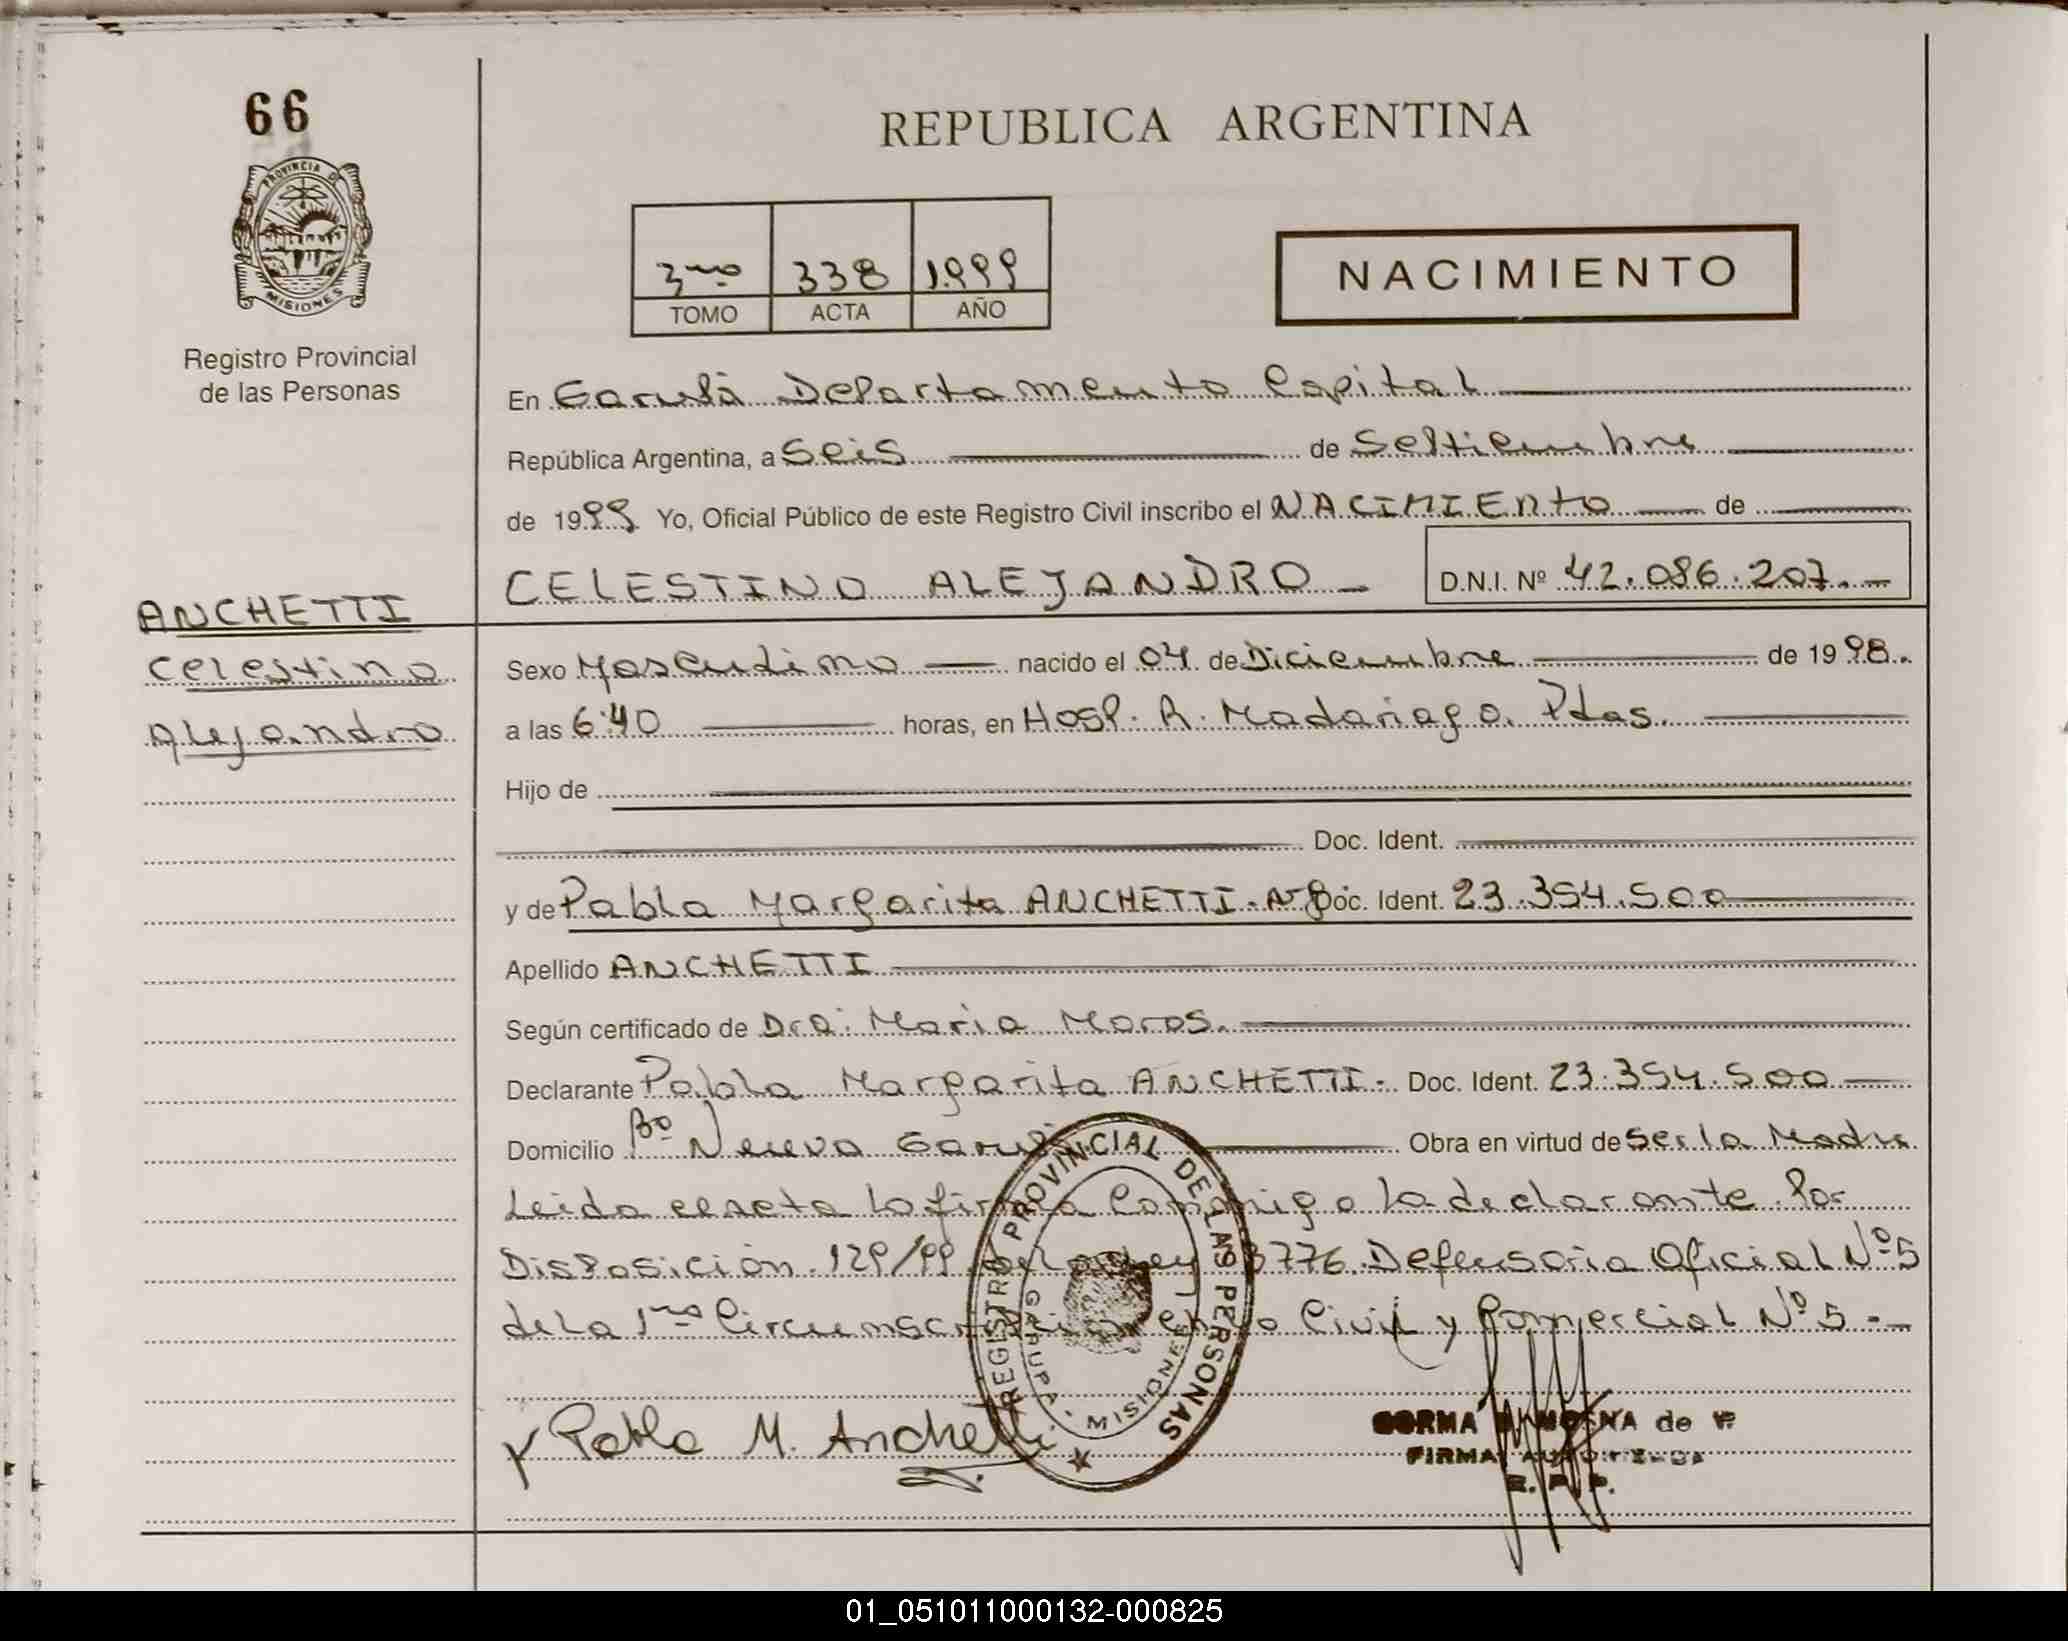 66
PROVINCIA D
MISIONES
Registro Provincial
de las Personas
REPUBLICA ARGENTINA
3ro 338 1.999
TOMO ACTA AÑO
NACIMIENTO
En Garupá Departamento Capital
República Argentina, a Seis de Septiembre
de 1999 Yo, Oficial Público de este Registro Civil inscribo el NACIMIENTO de
CELESTINO ALEJANDRO D.N.I. Nº 42.086.207.-
ANCHETTI
Celestino
Alejandro
Sexo Masculino nacido el 04 de Diciembre de 1998.
a las 6:40 horas, en Hosp. R. Madariaga. Pdas.
Hijo de
Doc. Ident.
y de Pabla Margarita ANCHETTI. Arg Doc. Ident. 23.354.500
Apellido ANCHETTI
Según certificado de Dra. Maria Moros.
Declarante Pabla Margarita ANCHETTI. Doc. Ident. 23.354.500
Domicilio Bº Nueva Garupá Obra en virtud de Ser la Madre
Leida el acta la firma Conmigo la declarante. Por
Disposición 129/99 de la Ley 3776. Defensoria Oficial Nº 5
de la 1ra Circunscripción en lo Civil y Comercial Nº 5.-
REGISTRO PROVINCIAL DE LAS PERSONAS
GARUPA - MISIONES
Pabla M. Anchetti
de P.
FIRMA AUTORIZADA
R. P. P.
01_051011000132-000825